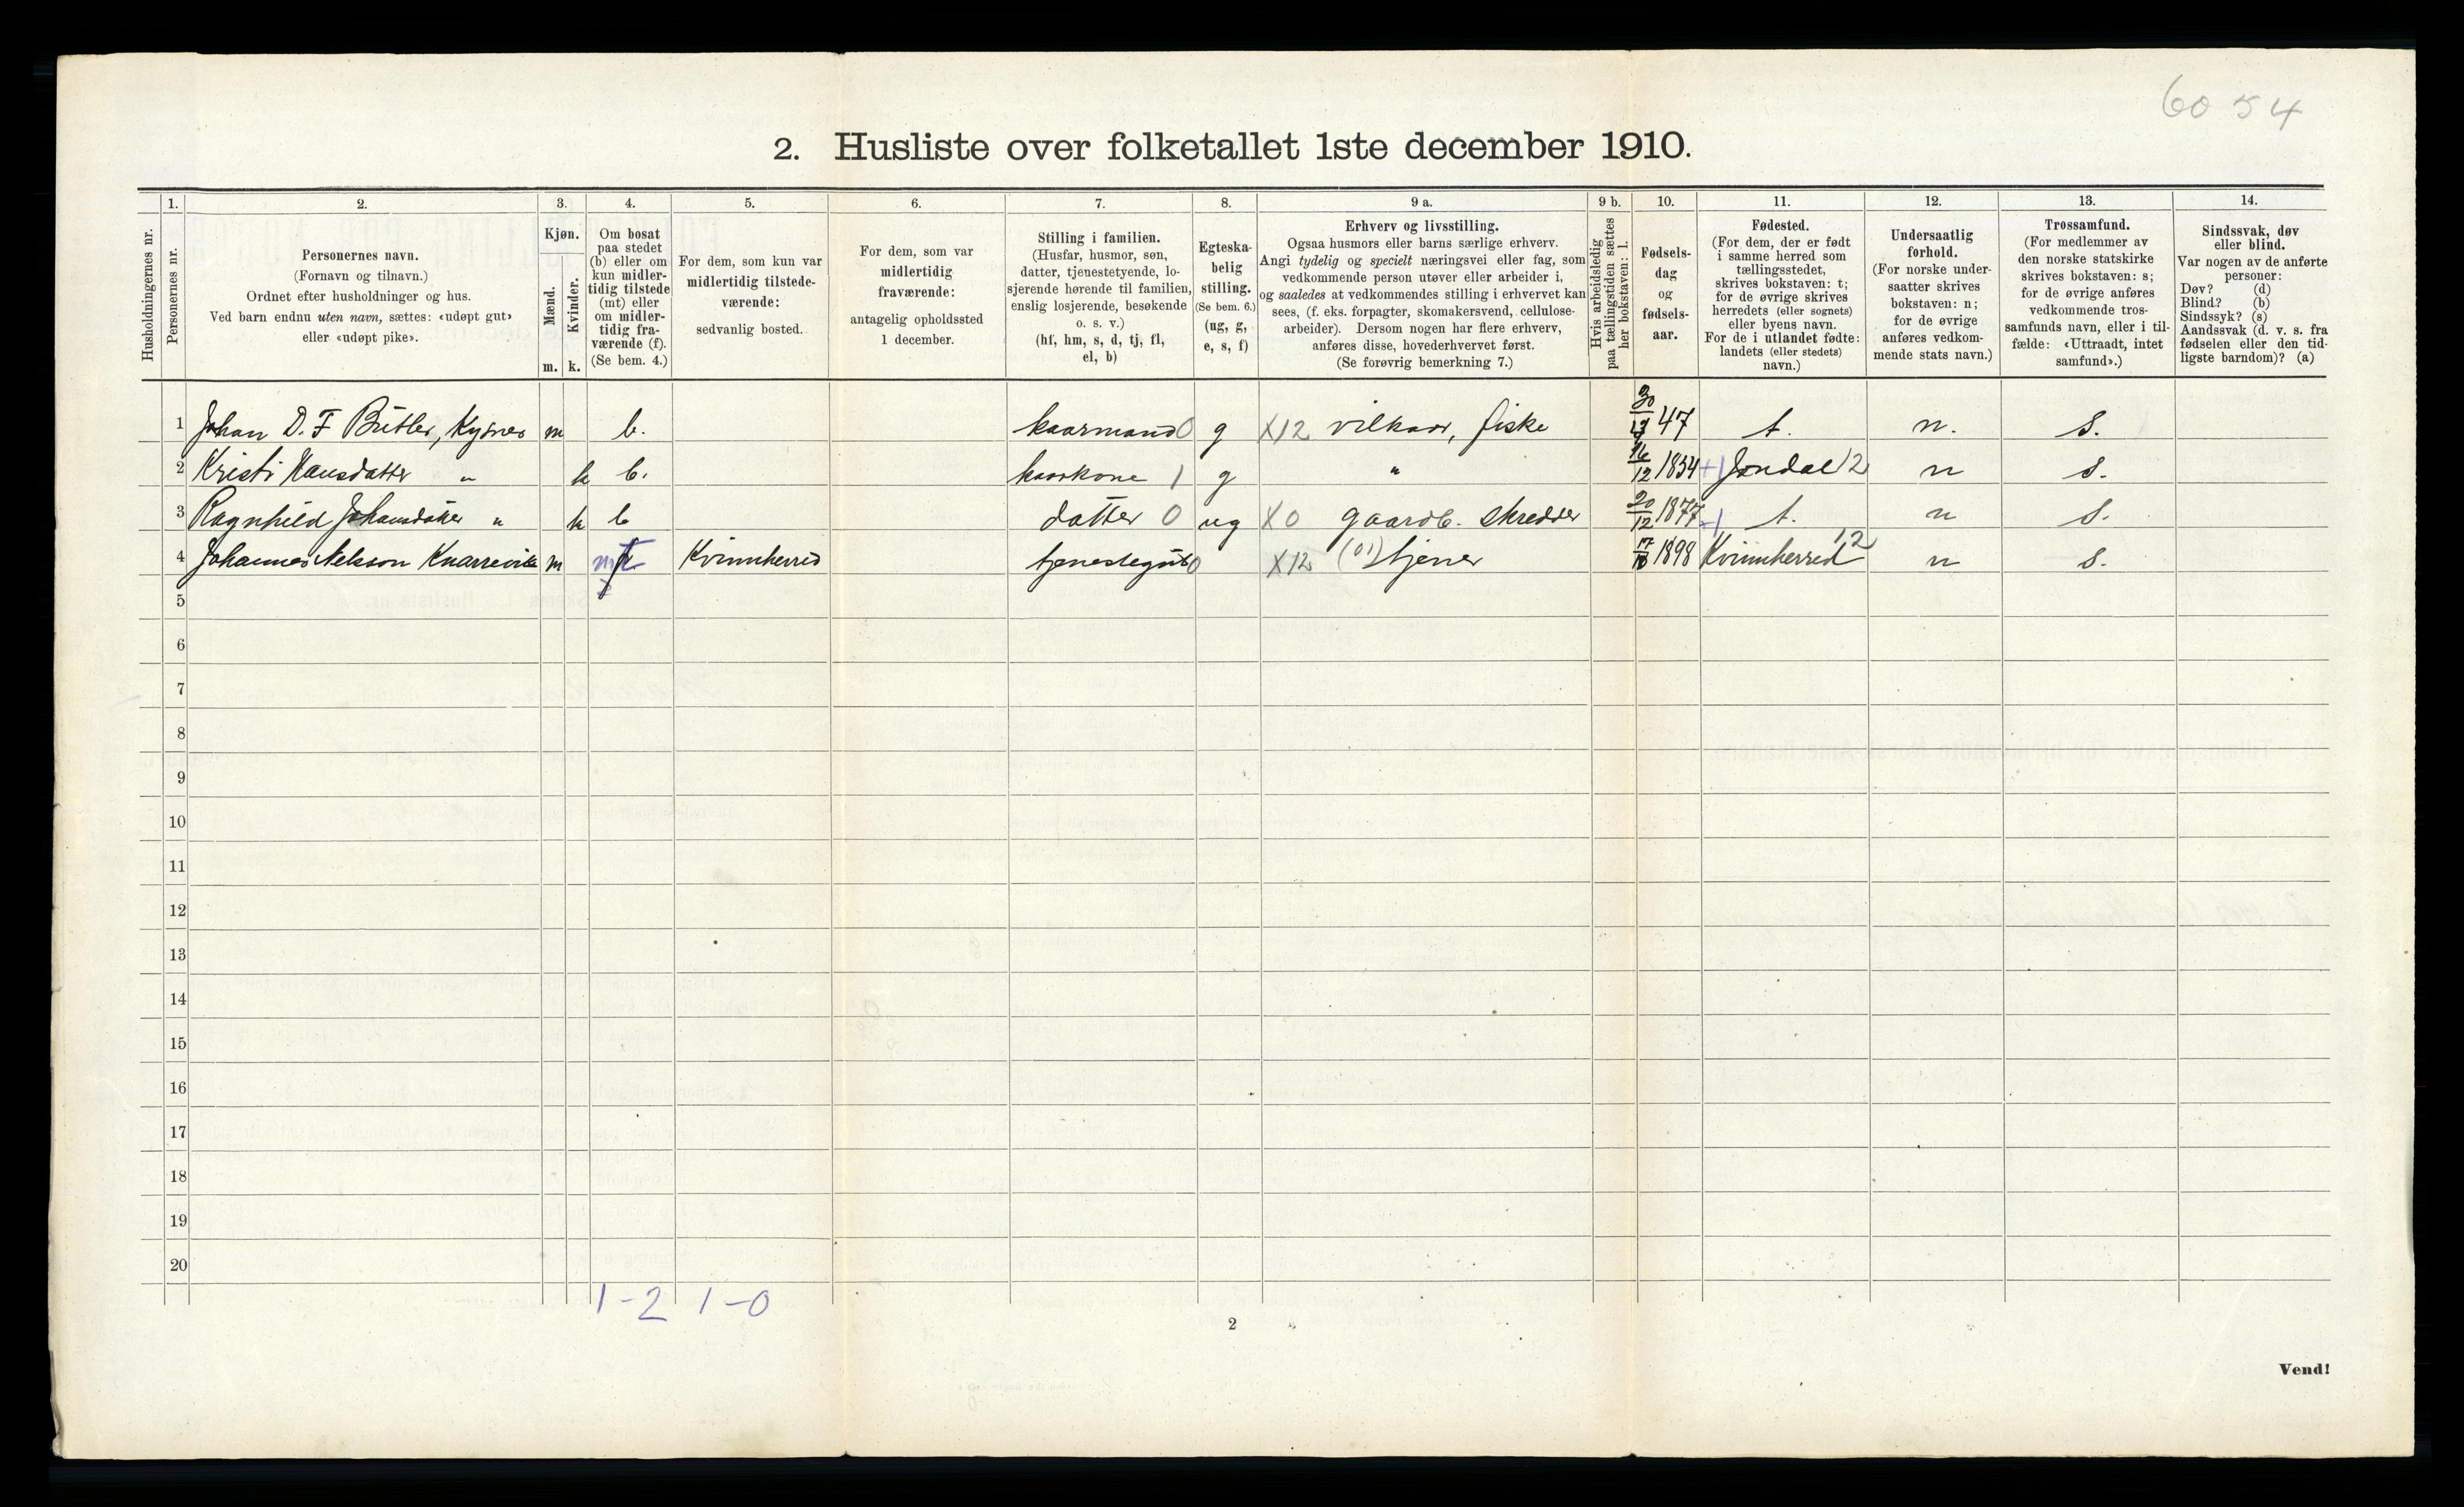 6054
2. Husliste over folketallet 1ste december 1910.
Husholdningernes nr.
1.
Personernes nr.
2.
Personernes navn.
(Fornavn og tilnavn.)
Ordnet efter husholdninger og hus.
Ved barn endnu uten navn, sættes: «udøpt gut»
eller «udøpt pike».
3.
Kjøn.
Mænd.
Kvinder.
m. k.
4.
Om bosat
paa stedet
(b) eller om
kun midler-
tidig tilstede
(mt) eller
om midler-
tidig fra-
værende (f).
(Se bem. 4.)
5.
For dem, som kun var
midlertidig tilstede-
værende:
sedvanlig bosted.
6.
For dem, som var
midlertidig
fraværende:
antagelig opholdssted
1 december.
7.
Stilling i familien.
(Husfar, husmor, søn,
datter, tjenestetyende, lo-
sjerende hørende til familien,
enslig losjerende, besøkende
o. s. v.)
(hf, hm, s, d, tj, fl,
el, b)
8.
Egteska-
belig
stilling.
(Se bem. 6.)
(ug, g,
e, s, f)
9 a.
Erhverv og livsstilling.
Ogsaa husmors eller barns særlige erhverv.
Angi tydelig og specielt næringsvei eller fag, som
vedkommende person utøver eller arbeider i,
og saaledes at vedkommendes stilling i erhvervet kan
sees, (f. eks. forpagter, skomakersvend, cellulose-
arbeider). Dersom nogen har flere erhverv,
anføres disse, hovederhvervet først.
(Se forøvrig bemerkning 7.)
9 b.
Hvis arbeidsledig
paa tællingstiden sættes
her bokstaven: l.
10.
Fødsels-
dag
og
fødsels-
aar.
11.
Fødested.
(For dem, der er født
i samme herred som
tællingsstedet,
skrives bokstaven: t;
for de øvrige skrives
herredets (eller sognets)
eller byens navn.
For de i utlandet fødte:
landets (eller stedets)
navn.)
12.
Undersaatlig
forhold.
(For norske under-
saatter skrives
bokstaven: n;
for de øvrige
anføres vedkom-
mende stats navn.)
13.
Trossamfund.
(For medlemmer av
den norske statskirke
skrives bokstaven: s;
for de øvrige anføres
vedkommende tros-
samfunds navn, eller i til-
fælde: «Uttraadt, intet
samfund».)
14.
Sindssvak, døv
eller blind.
Var nogen av de anførte
personer:
Døv? (d)
Blind? (b)
Sindssyk? (s)
Aandssvak (d. v. s. fra
fødselen eller den tid-
ligste barndom)? (a)
1 Johan D. F Bütler, Kysnes m b. kaarmand 0 g X12 vilkaar, fiske 30 47 t. n. s.
2 Kristi Hansdatter " k b. kaarkone 1 g " 16/12 1854 +1 Jondal 12 n s.
3 Ragnhild Johansdatter " k b datter 0 ug X0 gaardb. skredder 20/12 1877 -1 t. n s.
4 Johannes Nelsson Knarrevik m mt Kvinnherred tjenestegut 0 X12 (01) tjener 1898 Kvinnherred 12 n s.
5
6
7
8
9
10
11
12
13
14
15
16
17
18
19
20
1-2 1-0
2
Vend!